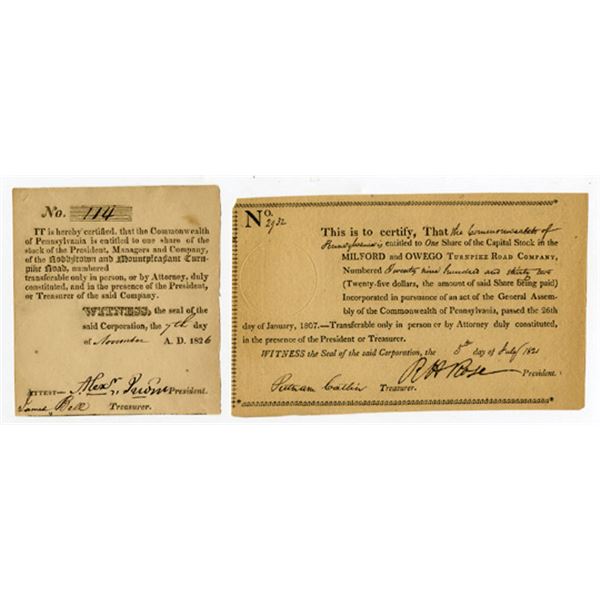 No. 114
IT is hereby certified, that the Commonwealth
of Pennsylvania is entitled to one share of the
stock of the President, Managers and Company,
of the Roddytown and Mountpleasant Turn-
pike Road, numbered
transferable only in person, or by Attorney, duly
constituted, and in the presence of the President,
or Treasurer of the said Company.
WITNESS, the seal of the
said Corporation, the 7th day
of November A. D. 1826
ATTEST— Alexr. President.
James Bell Treasurer.
No.
2932
This is to certify, That the Commonwealth of
Pennsylvania is entitled to One Share of the Capital Stock in the
MILFORD and OWEGO TURNPIKE ROAD COMPANY,
Numbered Twenty nine hundred and thirty two
(Twenty-five dollars, the amount of said Share being paid)
Incorporated in pursuance of an act of the General Assem-
bly of the Commonwealth of Pennsylvania, passed the 26th
day of January, 1807.—Transferable only in person or by Attorney duly constituted,
in the presence of the President or Treasurer.
WITNESS the Seal of the said Corporation, the 5th day of July 1821
Putnam Catlin Treasurer. R H Rose President.